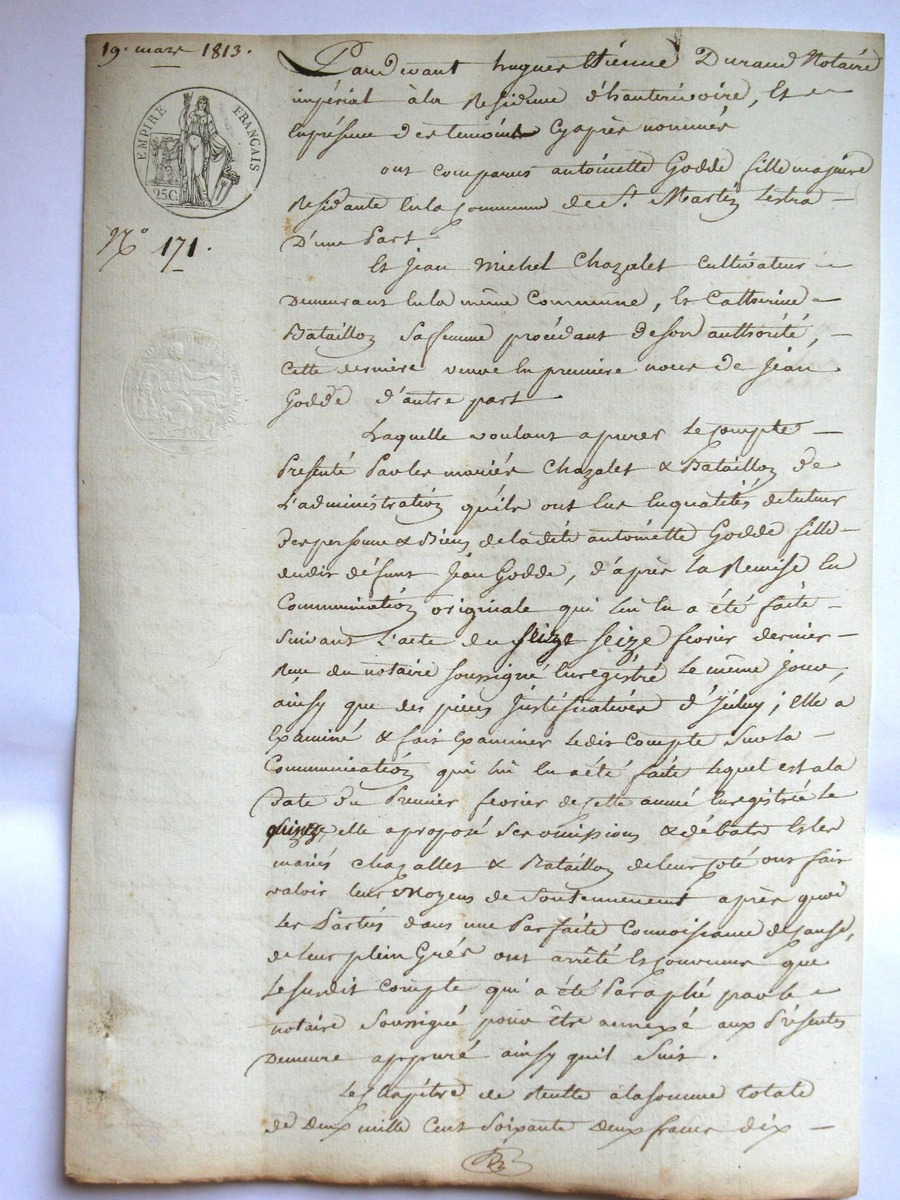 19. mars 1813.
EMPIRE FRANÇAIS
25C.
N.° 171.
Pardevant hugues Etienne Durand Notaire
impérial à la Residence d'hauterivoire, Et
En présence des temoins Cyaprès nommés
ont comparus antoinette Godde fille majeure
Residante En la Commune de S.t Martin Lestra
D'une Part
Et Jean Michel Chazalet Cultivateur
Demeurant En la même Commune, Et Catherine
Bataillon Sa femme procédant de son authorité,
Cette dernière veuve En premiere noces de Jean
Godde d'autre part
Laquelle voulant apurer Le Compte
Présenté Par les mariés Chazalet & Bataillon de
L'administration qu'ils ont Eue En qualités de tuteur
des personne & Biens de la dite antoinette Godde fille
dudit défunt Jean Godde, d'après La Remise En
Communication originale qui lui En a été faite
Suivant L'acte du seize Seize fevrier dernier
Reçu du notaire Soussigné Enregistré Le même jour,
ainsy que des pieces Justificatives d'Iceluy; Elle a
Examiné & fait Examiner Ledit Compte Sur La
Communication qui lui En a été faite Lequel est a la
Date du Premier fevrier de Cette année Enregistrée Le
quinze, elle a proposé Ses omissions & débats Et les
mariés Chazallet & Bataillon de leur Coté ont fait
valoir leurs Moyens de Soutennement après quoi
Les Parties dans une Parfaite Connoissance de Cause,
de leur plein Grés ont arrêté Et Convenus que
Le Susdit Compte qui a été Paraphé par le
notaire Soussigné pour être annexé aux Présentes
Demeure appuré ainsy qu'il Suit.
Le Chapitre de Recette à la Somme totale
de Deux mille Cent Soixante Deux francs dix